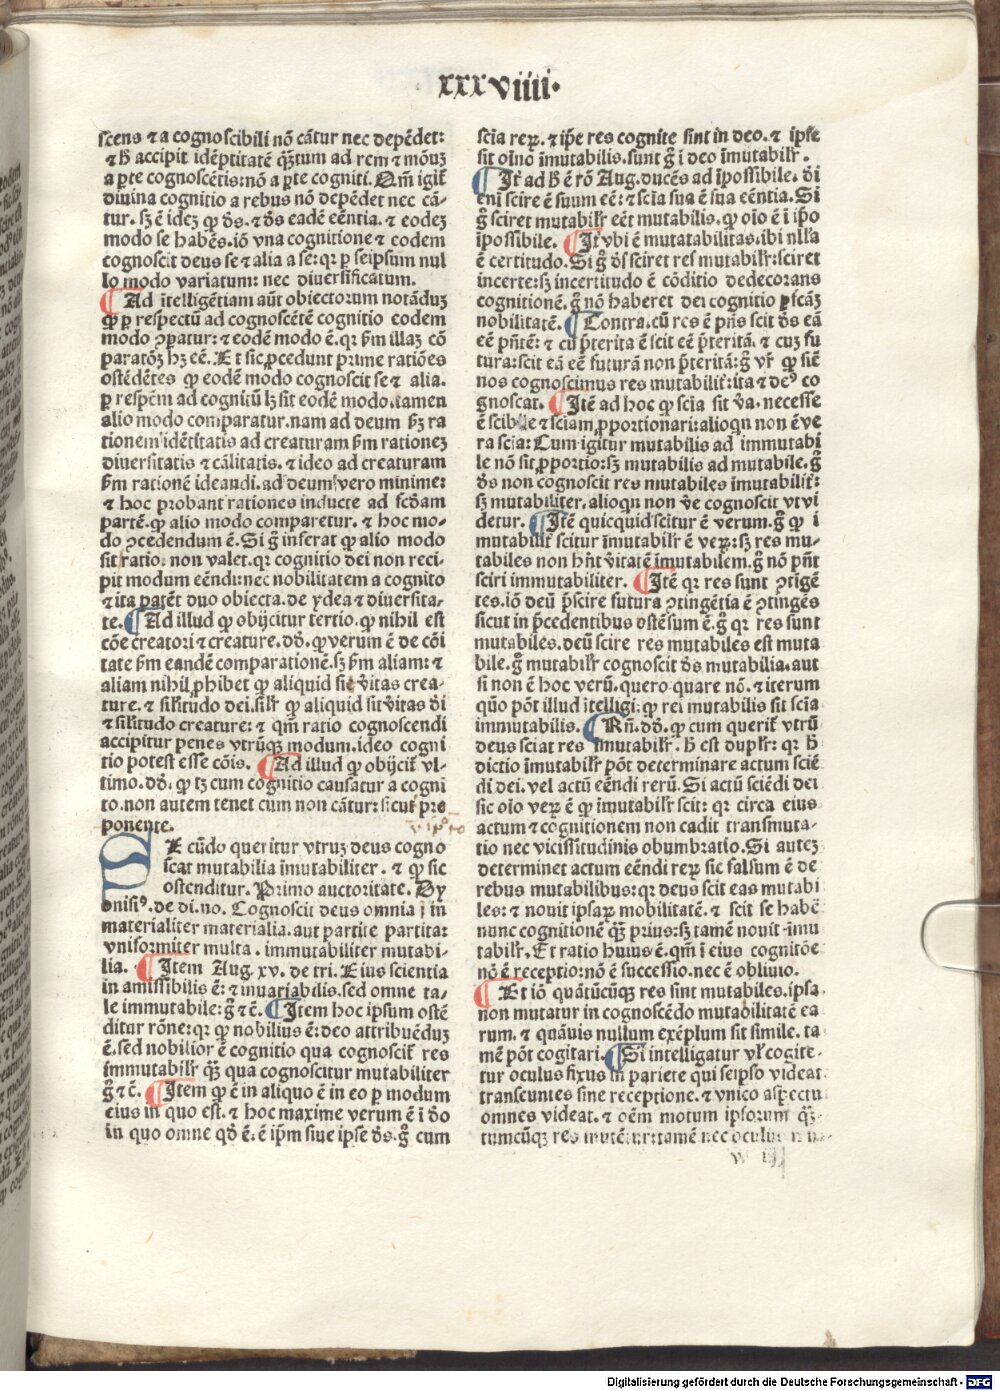 xxxviiii·
scens ⁊ a cognoscibili nō cātur nec depēdet:
⁊ h̄ accipit idēptitatē q̄ꝫtum ad rem ⁊ mōuꝫ
a ꝑte cognoscētis: nō a ꝑte cogniti. Qm̄ igit᷑
diuina cognitio a rebus nō depēdet nec cā-
tur. sꝫ ē ideꝫ qꝫ ds̄. ⁊ ds̄ eadē eēntia. ⁊ eodeꝫ
modo se habēs. iō vna cognitione ⁊ eodem
cognoscit deus se ⁊ alia a se: qꝛ ꝑ seipsum nul
lo modo variatum: nec diuersificatum.
¶ Ad ītelligētiam aūt obiectorum notāduꝫ
ꝙ ꝑ respectū ad cognoscētē cognitio eodem
modo ꝯparatur: ⁊ eodē modo ē. qꝛ ẜm illaꝫ cō
paratōꝫ hꝫ eē. Et sic ꝓcedunt prime ratiōes
ostēdētes ꝙ eodē modo cognoscit se ⁊ alia.
ꝑ respēm ad cognitū lꝫ sit eodē modo. tamen
alio modo comparatur. nam ad deum ẜꝫ ra
tionem idētitatis ad creaturam ẜm rationeꝫ
diuersitatis ⁊ cālitatis. ⁊ ideo ad creaturam
ẜm rationē ideandi. ad deum vero minime:
⁊ hoc probant rationes inducte ad scd̄am
partē. ꝙ alio modo comparetur. ⁊ hoc mo-
do ꝯcedendum ē. Si g̊ inferat ꝙ alio modo
sit ratio. non valet. qꝛ cognitio dei non reci-
pit modum eēndi: nec nobilitatem a cognito
⁊ ita patēt duo obiecta. de ydea ⁊ diuersita-
te. ¶ Ad illud ꝙ obijcitur tertio. ꝙ nihil est
cōe creatori ⁊ creature. dd̄. ꝙ verum ē de cōi
tate ẜm eandē comparationē. sꝫ ẜm aliam: ⁊
aliam nihil ꝓhibet ꝙ aliquid sit v̄itas crea-
ture. ⁊ sil̄itudo dei. sil̄r ꝙ aliquid sit v̄itas d̄i
⁊ sil̄itudo creature: ⁊ qm̄ ratio cognoscendi
accipitur penes vtrūqꝫ modum. ideo cogni
tio potest esse cōis. ¶ Ad illud ꝙ obijcit᷑ vl-
timo. dd̄. ꝙ lꝫ cum cognitio causatur a cogni
to. non autem tenet cum non cātur: sicut pre
ponente.
SE cūdo queritur vtruꝫ deus cogno
scat mutabilia īmutabiliter. ⁊ ꝙ sic
ostenditur. Primo auctoritate. Dy
onisiꝰ. de di. no. Cognoscit deus omnia ī im
materialiter materialia. aut partite partita:
vniformiter multa. immutabiliter mutabi-
lia. ¶ Item Aug. xv. de tri. Eius scientia
in amissibilis ē: ⁊ inuariabilis. sed omne ta-
le immutabile: g̊ ⁊ c̄. ¶ Item hoc ipsum ostē
ditur rōne: qꝛ ꝙ nobilius ē: deo attribuēduꝫ
ē. sed nobilior ē cognitio qua cognoscit᷑ res
immutabil̄r q̄ꝫ qua cognoscitur mutabiliter
g̊ ⁊ c̄. ¶ Item ꝙ ē in aliquo ē in eo ꝑ modum
eius in quo est. ⁊ hoc maxime verum ē ī d̄o
in quo omne qd̄ ē. ē ip̄m siue ipse ds̄. g̊ cum
scīa reꝝ. ⁊ ip̄e res cognite sint in deo. ⁊ ip̄se
sit oīno īmutabilis. sunt g̊ ī deo īmutabil̄r.
¶ It̄ ad h̄ ē rō Aug. ducēs ad īpossibile. d̄i
eni scire ē suum eē: ⁊ scīa sua ē sua eēntia. Si
g̊ sciret mutabil̄r eēt mutabilis. ꝙ oīo ē ī ip̄o
īpossibile. ¶ It̄ vbi ē mutatabilitas. ibi nlla
ē certitudo. Si g̊ ds̄ sciret res mutabil̄r: sciret
incerte: sꝫ incertitudo ē cōditio dedecorans
cognitionē. g̊ nō haberet dei cognitio ꝑfcāꝫ
nobilitatē. ¶ Contra. cū res ē pn̄s scit ds̄ eā
eē pn̄tē: ⁊ cū p̄terita ē scit eē p̄teritā. ⁊ cuꝫ fu
tura: scit eā eē futurā non p̄teritā: g̊ vr̄ ꝙ siē
nos cognoscimus res mutabilit᷑: ita ⁊ deꝰ co
gnoscat. ¶ Itē ad hoc ꝙ scīa sit v̄a. necesse
ē scibile ⁊ sciam ꝓportionari: alioqn non ē ve
ra scīa: Cum igitur mutabilis ad immutabi
le nō sit ꝓportio: sꝫ mutabilis ad mutabile. g̊
ds̄ non cognoscit res mutabiles īmutabilit᷑:
sꝫ mutabiliter. alioqn non v̄e cognoscit vt vi
detur. ¶ Itē quicquid scitur ē verum. g̊ ꝙ ī
mutabilit᷑ scitur īmutabil̄r ē veꝝ: sꝫ res mu-
tabiles non hn̄t v̄itatē īmutabilem. g̊ nō pn̄t
sciri immutabiliter. ¶ Itē qꝛ res sunt ꝯtigē
tes. iō deū p̄scire futura ꝯtingētia ē ꝯtingēs
sicut in p̄cedentibus ostēsum ē. g̊ qꝛ res sunt
mutabiles. deū scire res mutabiles est muta
bile. g̊ mutabil̄r cognoscit ds̄ mutabilia. aut
si non ē hoc verū. quero quare nō. ⁊ iterum
quō pōt illud ītelligi: ꝙ rei mutabilis sit scīa
immutabilis. ¶ Rn̄. dd̄. ꝙ cum querit᷑ vtrū
deus sciat res īmutabil̄r. h̄ est dupl̄r: qꝛ h̄
dictio īmutabil̄r pōt determinare actum sciē
di dei. vel actū eēndi rerū. Si actū sciēdi dei
sic oīo veꝝ ē ꝙ īmutabil̄r scit: qꝛ circa eius
actum ⁊ cognitionem non cadit transmuta-
tio nec vicissitudinis obumbratio. Si auteꝫ
determinet actum eēndi reꝝ sic falsum ē de
rebus mutabilibus: qꝛ deus scit eas mutabi
les: ⁊ nouit ipsaꝝ mobilitatē. ⁊ scit se habē
nunc cognitionē q̄ꝫ prius: sꝫ tamē nouit īmu
tabil̄r. Et ratio huius ē. qm̄ ī eius cognitōe
nō ē receptio: nō ē successio. nec ē obliuio.
¶ Et iō quātūcūqꝫ res sint mutabiles. ipsa
non mutatur in cognoscēdo mutabilitatē ea
rum. ⁊ quāuis nullum exēplum sit simile. ta
mē pōt cogitari. ¶ Si intelligatur vl̄ cogite-
tur oculus fixus in pariete qui seipso videat
transeuntes sine receptione. ⁊ vnico aspectu
omnes videat. ⁊ oēm motum ipsorum q̄ꝫ-
tumcūqꝫ res mutētur: tamē nec oculus
Digitalisierung gefördert durch die Deutsche Forschungsgemeinschaft - DFG